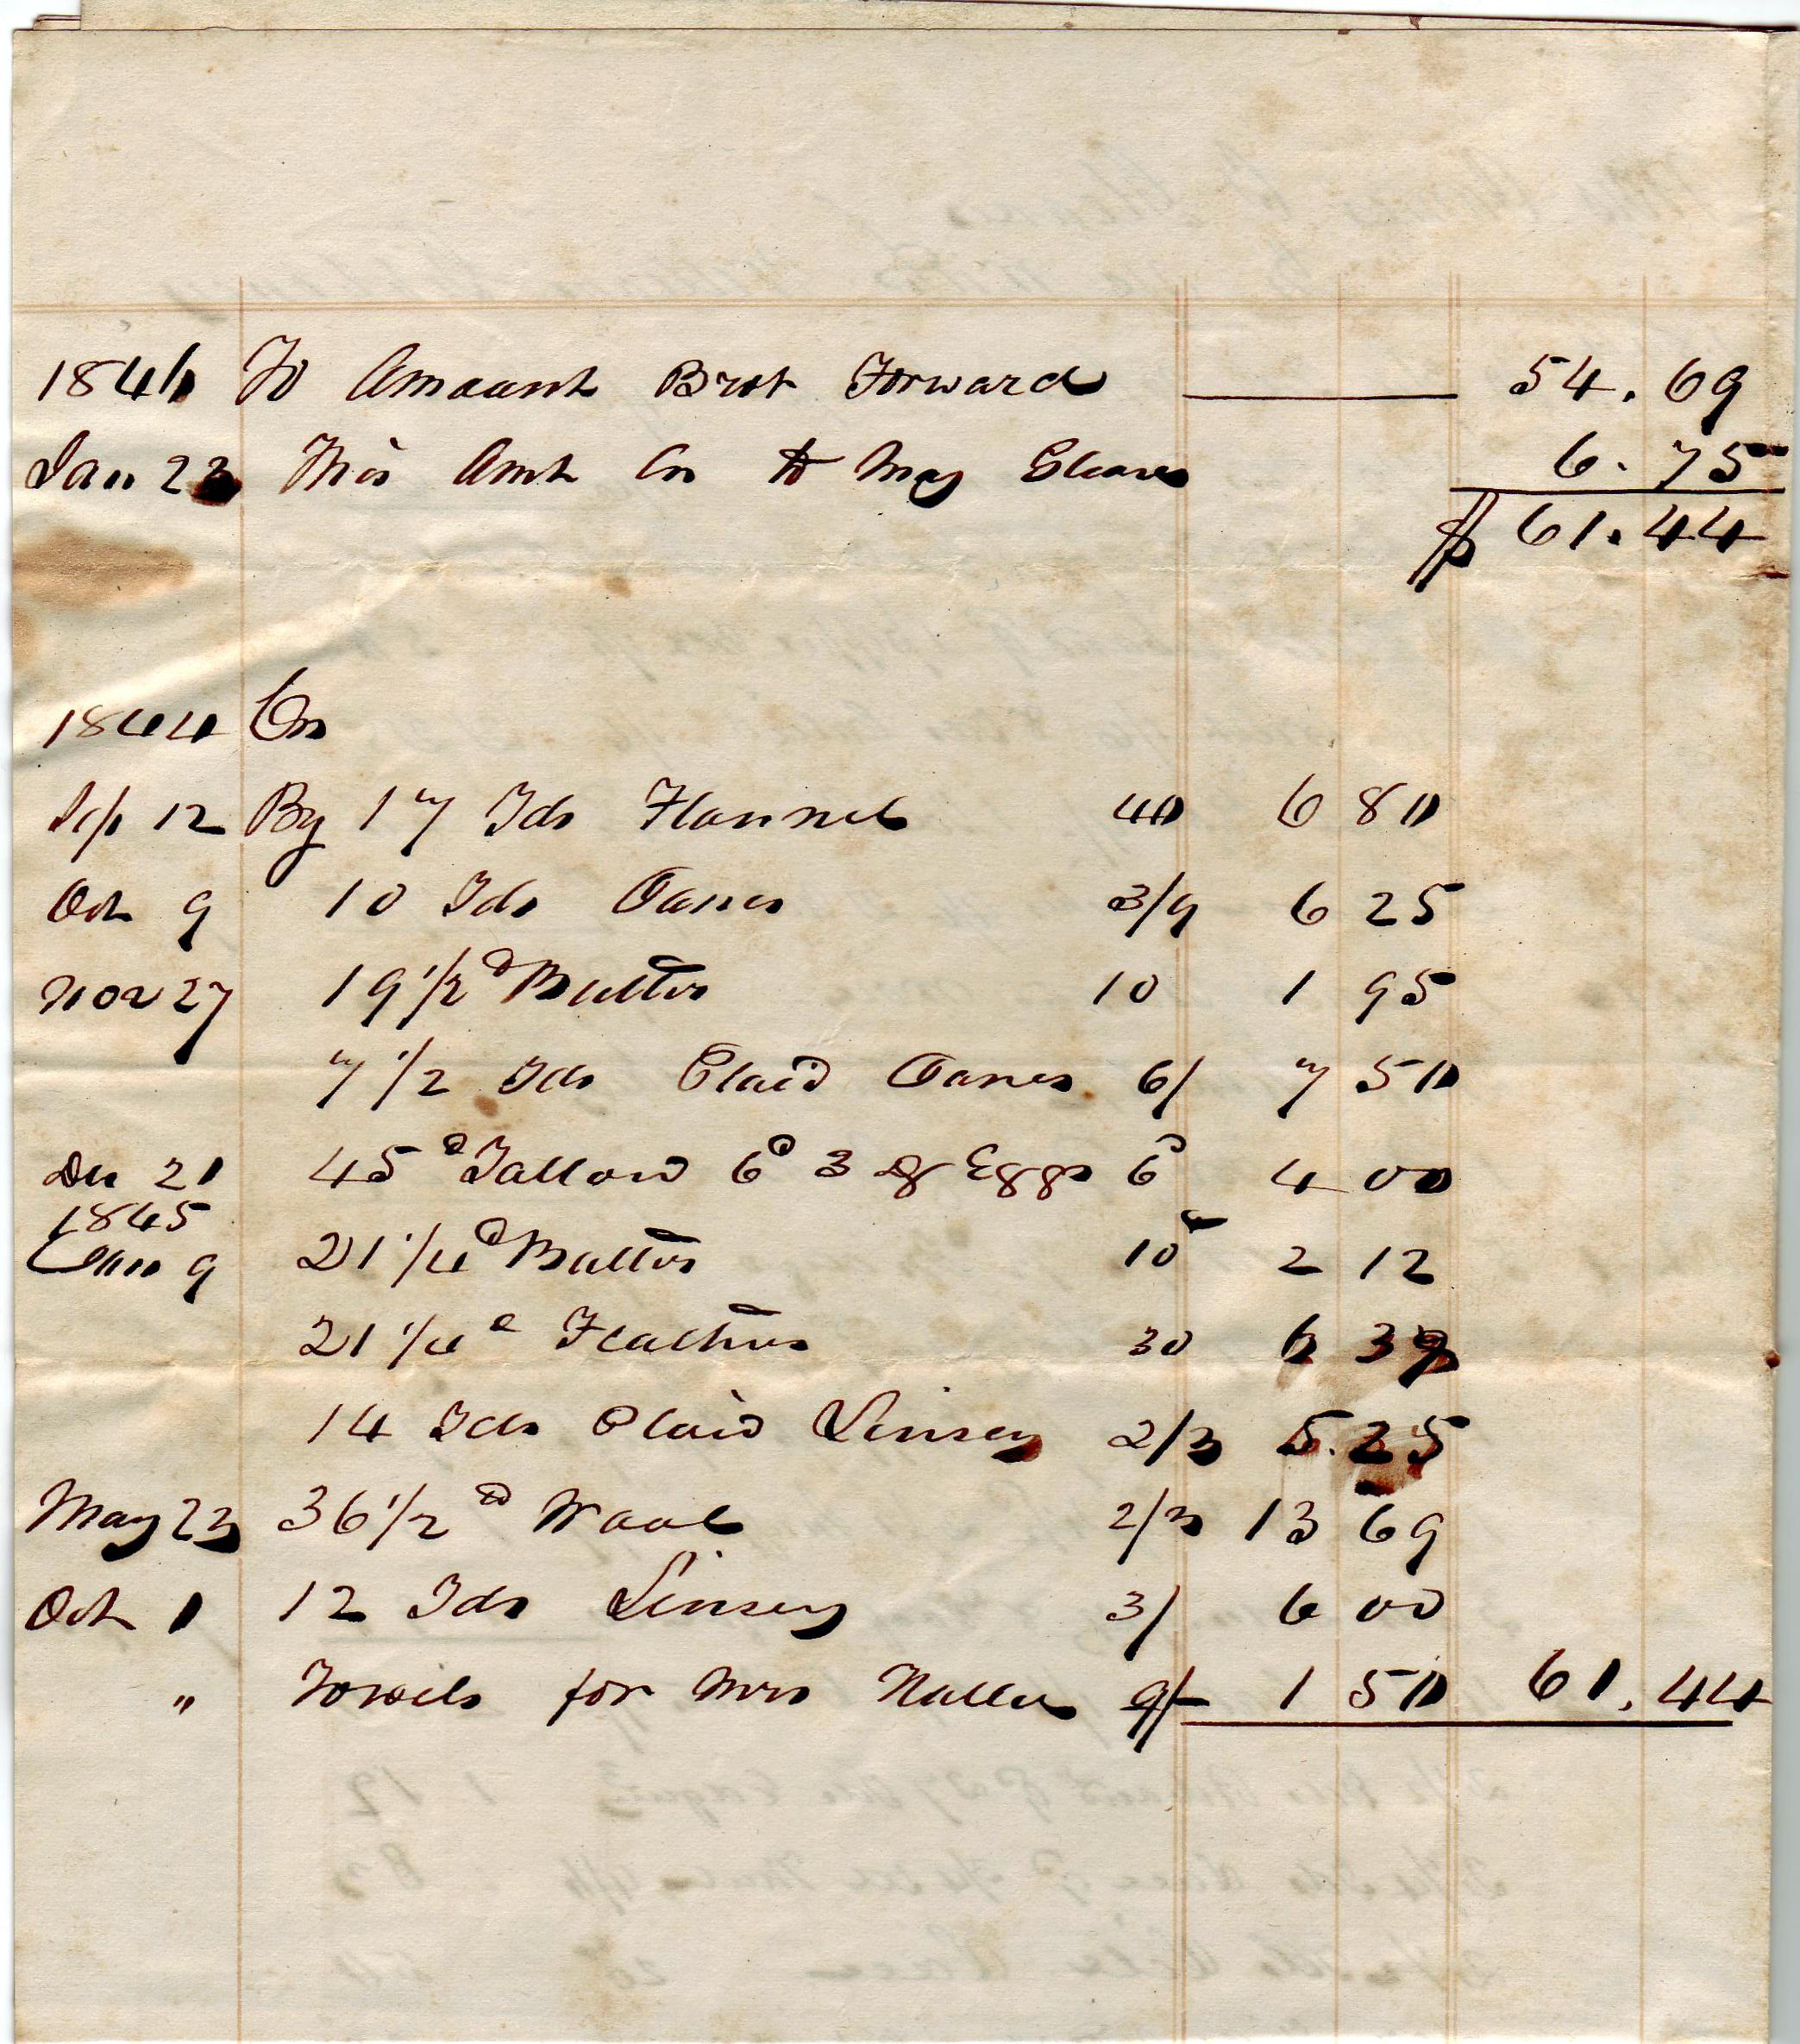 1846 To Amount Brot Forward 54.69
Jan 23 This Amt Cr to May 6.75
$ 61.44
1844 Cr
Sep 12 By 17 Yds Flannel 40 6 80
Oct 9 10 Yds Janes 3/9 6 25
Nov 27 19 1/2 Butter 10 1 95
7 1/2 Yds Plaid Janes 6/ 7 50
Dec 21 45 Tallow 6 3 Dz Eggs 6 4 00
1845
Jan 9 21 1/4 Butter 10 2 12
21 1/4 Feathers 30 6 38
14 Yds Plaid Linsey 2/3 5.25
May 23 36 1/2 Wool 2/3 13 69
Oct 1 12 Yds Linsey 3/ 6 00
" Towels for Mrs 9/ 1 50 61.44